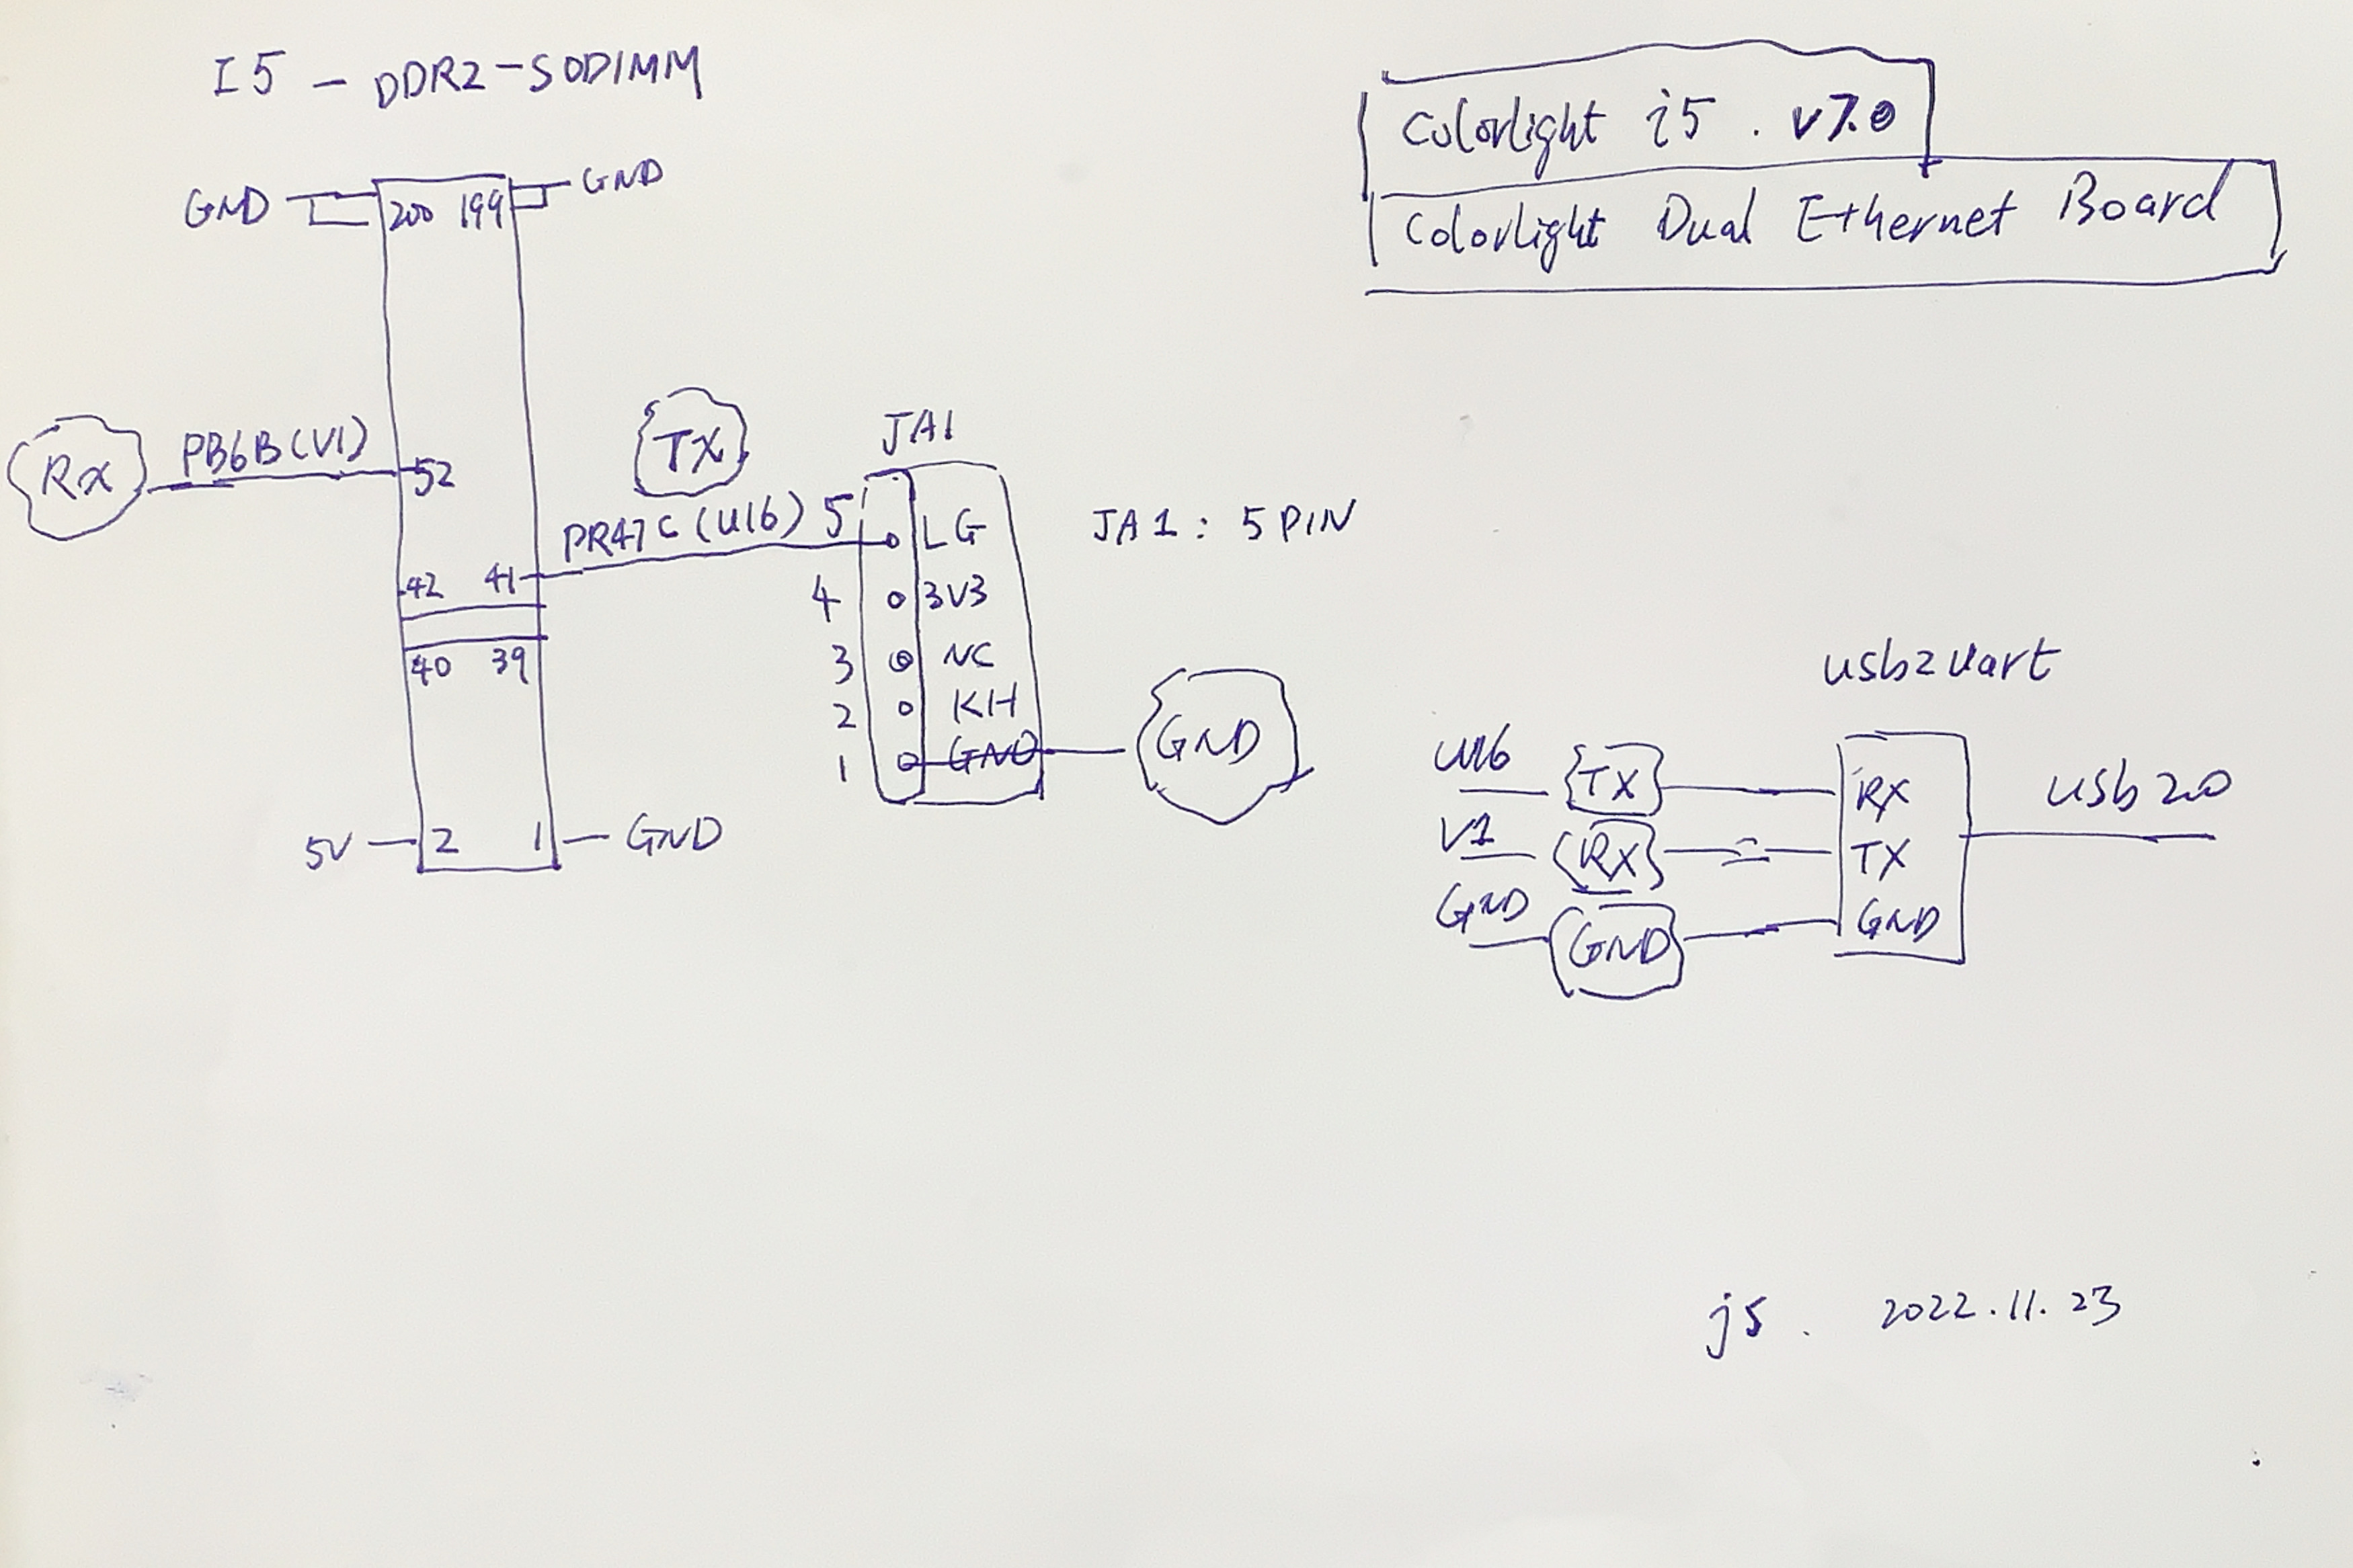 I5 - DDR2-SODIMM
Colorlight i5 . v7.0
Colorlight Dual Ethernet Board
GND 200 199 GND
RX PB6B(V1) 52
TX
PR47C(U16)
42 41
40 39
5V 2 1 GND
JA1
5 LG
4 3V3
3 NC
2 KH
1 GND
GND
JA1: 5PIN
usb2uart
U16 TX RX
V1 RX TX
GND GND GND
usb2.0
js. 2022.11.23